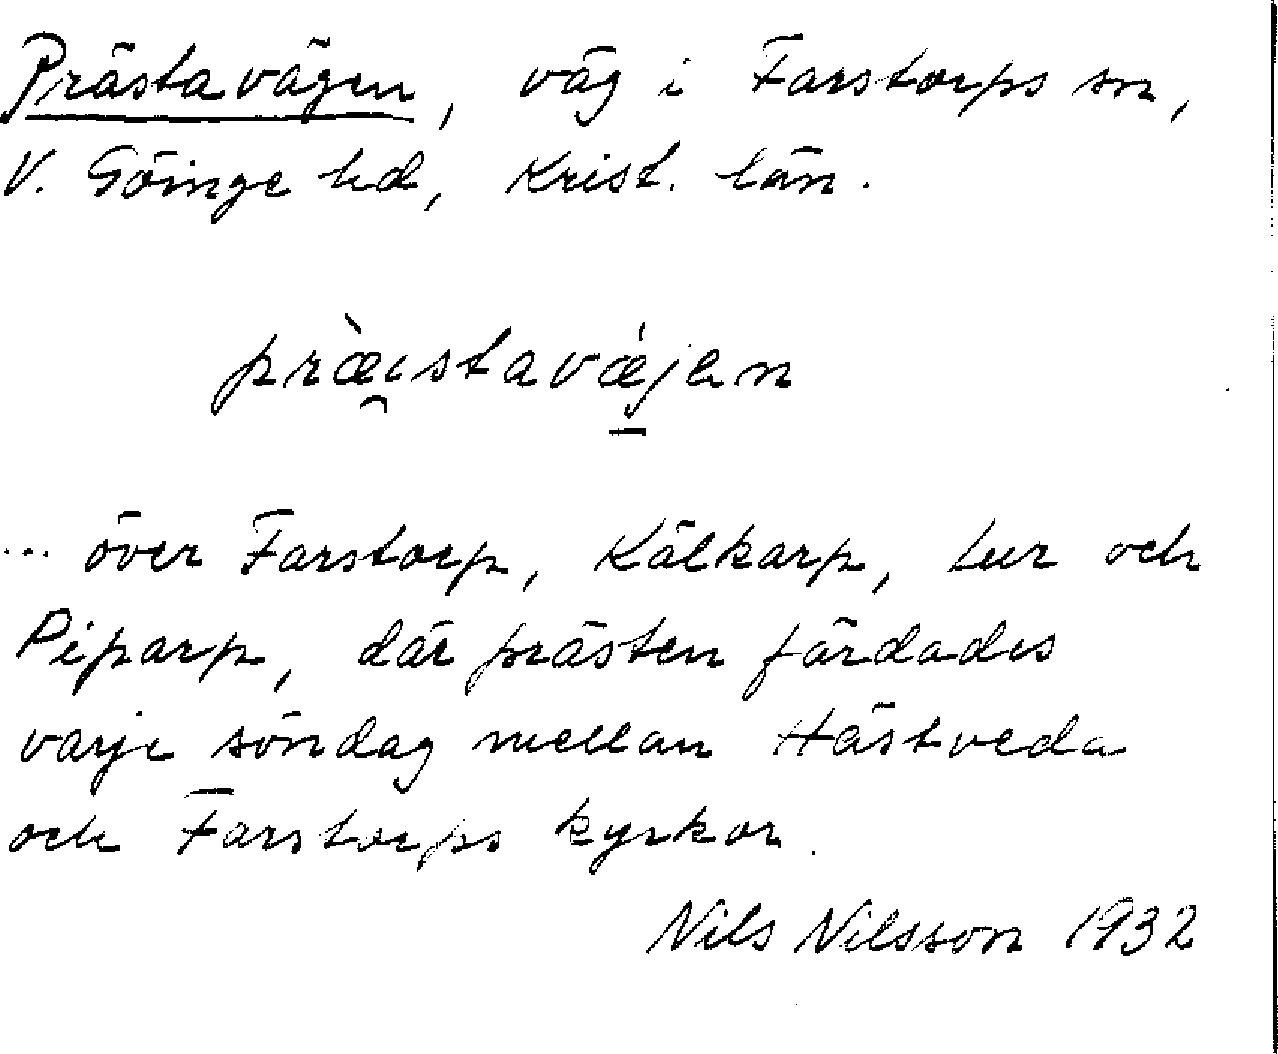 Prästavägen, väg i Farstorps sn,
V. Göinge hd, Krist. län.
præ̀i̯stavǽ̱jen
... över Farstorp, Kälkarp, Lur och
Piparp, där prästen färdades
varje söndag mellan Hästveda
och Farstorps kyrkor.
Nils Nilsson 1932